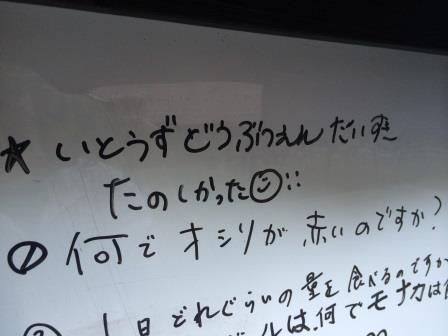 ★ いとうずどうぶつえん だいすき
たのしかった☺::
① 何で オシリが 赤いのですか?
② 1日 どれぐらいの 量を 食べるのですか
ルは、何で モナカは